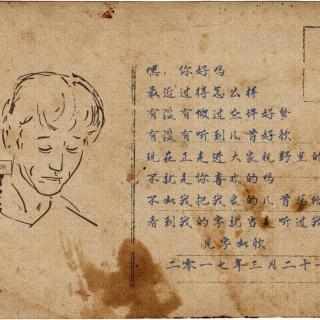 嘿，你好吗
最近过得怎么样
有没有做过些许好梦
有没有听到几首好歌
现在正走进大家视野里的
不就是你喜欢的吗
不如我把我家的几首
看到我的字就当是听过我
见字如歌
二零一七年三月二十